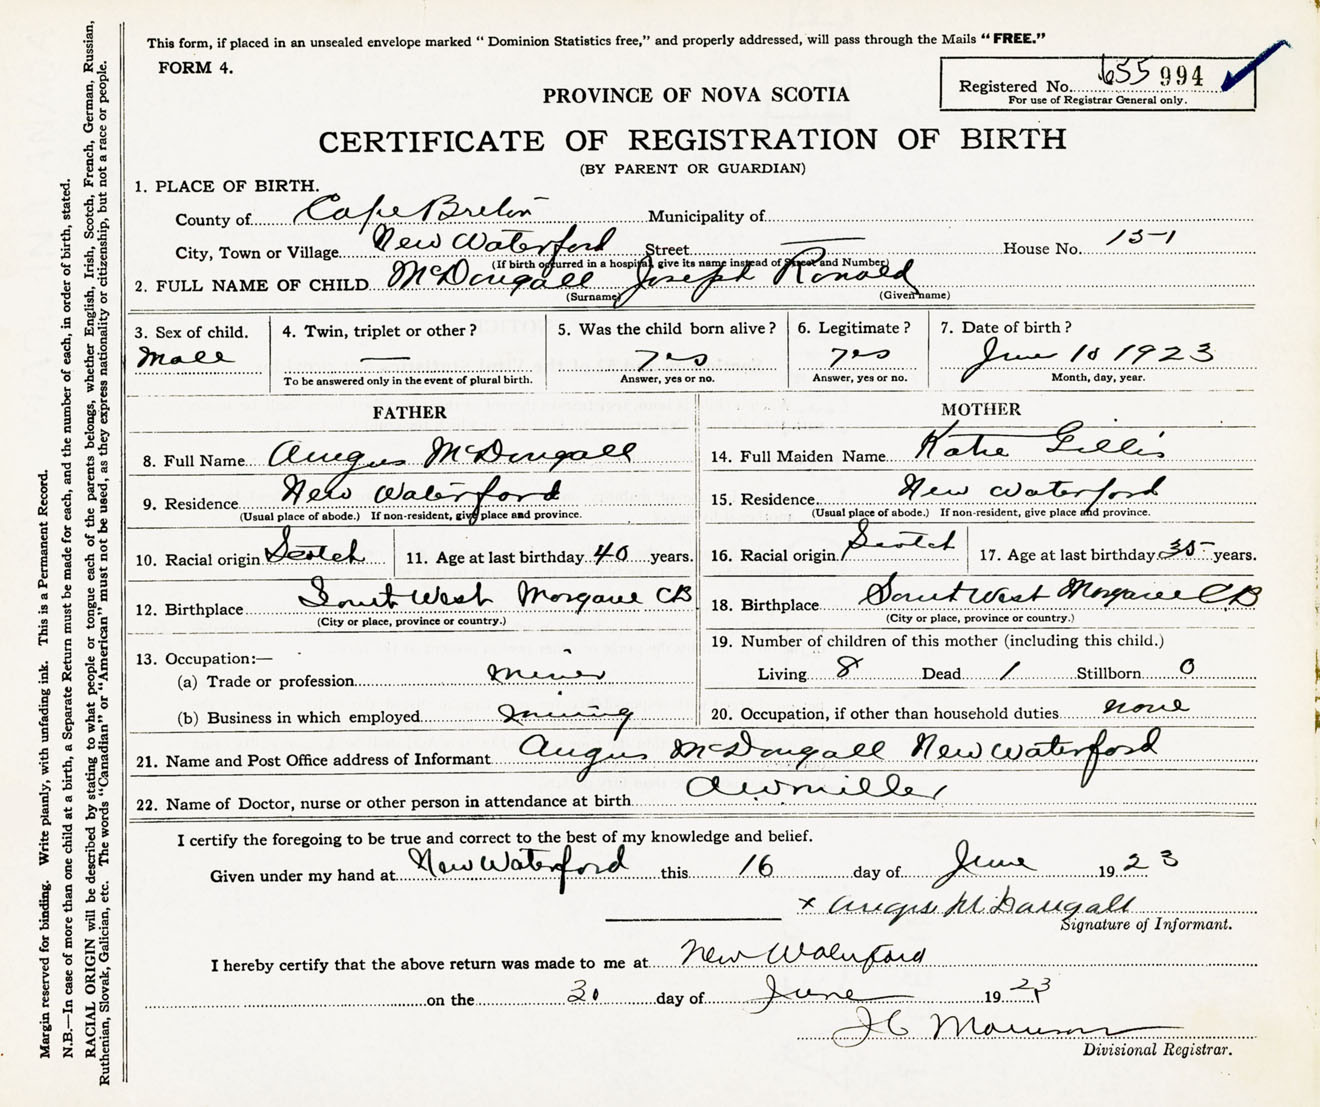 This form, if placed in an unsealed envelope marked “ Dominion Statistics free,” and properly addressed, will pass through the Mails “ FREE.”
FORM 4.
Registered No. 655 994
For use of Registrar General only.
PROVINCE OF NOVA SCOTIA
CERTIFICATE OF REGISTRATION OF BIRTH
(BY PARENT OR GUARDIAN)
1. PLACE OF BIRTH.
County of Cape Breton Municipality of
City, Town or Village New Waterford Street — House No. 15-1
(If birth occurred in a hospital, give its name instead of Street and Number)
2. FULL NAME OF CHILD McDougall Joseph Ronald
(Surname) (Given name)
3. Sex of child. 4. Twin, triplet or other? 5. Was the child born alive? 6. Legitimate? 7. Date of birth?
Male — yes yes June 10 1923
To be answered only in the event of plural birth. Answer, yes or no. Answer, yes or no. Month, day, year.
FATHER
8. Full Name Angus McDougall
9. Residence New Waterford
(Usual place of abode.) If non-resident, give place and province.
10. Racial origin Scotch 11. Age at last birthday 40 years.
12. Birthplace South West Margaree CB
(City or place, province or country.)
13. Occupation:—
(a) Trade or profession miner
(b) Business in which employed mining
MOTHER
14. Full Maiden Name Katie Gillis
15. Residence New Waterford
(Usual place of abode.) If non-resident, give place and province.
16. Racial origin Scotch 17. Age at last birthday 35 years.
18. Birthplace South West Margaree CB
(City or place, province or country.)
19. Number of children of this mother (including this child.)
Living 8 Dead 1 Stillborn 0
20. Occupation, if other than household duties none
21. Name and Post Office address of Informant Angus McDougall New Waterford
22. Name of Doctor, nurse or other person in attendance at birth A W Miller
I certify the foregoing to be true and correct to the best of my knowledge and belief.
Given under my hand at New Waterford this 16 day of June 1923
x Angus McDougall
Signature of Informant.
I hereby certify that the above return was made to me at New Waterford
on the 30 day of June 1923
J C Morrison
Divisional Registrar.
Margin reserved for binding. Write plainly, with unfading ink. This is a Permanent Record.
N.B.—In case of more than one child at a birth, a Separate Return must be made for each, and the number of each, in order of birth, stated.
RACIAL ORIGIN will be described by stating to what people or tongue each of the parents belongs, whether English, Irish, Scotch, French, German, Russian,
Ruthenian, Slovak, Galician, etc. The words “Canadian” or “American” must not be used, as they express nationality or citizenship, but not a race or people.